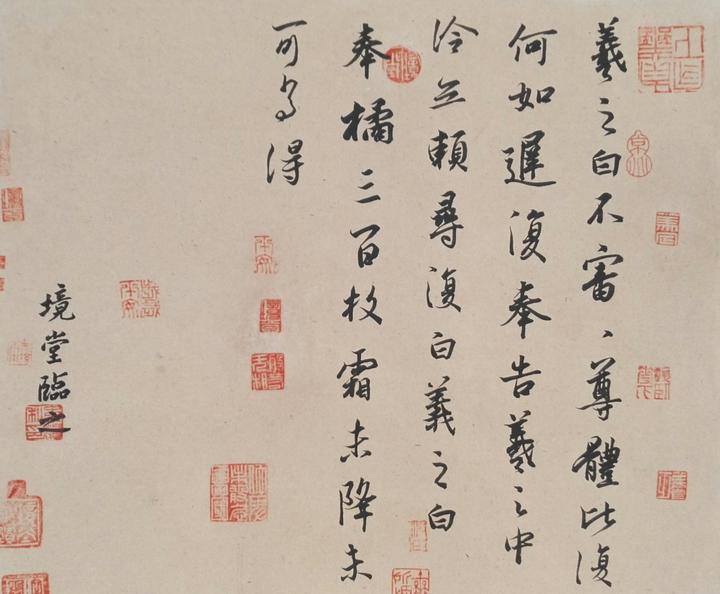 羲之白不審、尊體比復
何如遲復奉告羲之中
冷無賴尋復白羲之白
奉橘三百枚霜未降未
可多得
境堂臨之